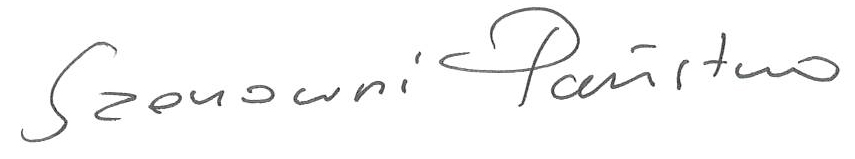 Szanowni Państwo